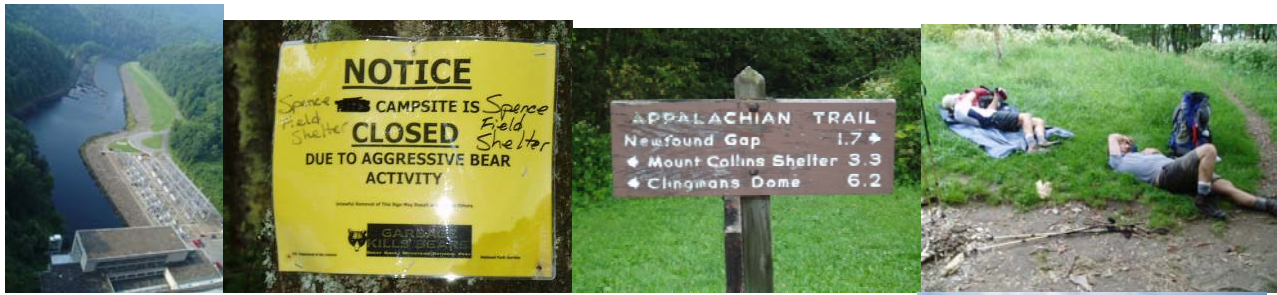 NOTICE
Spence CAMPSITE IS Spence
Field CLOSED Field
Shelter DUE TO AGGRESSIVE BEAR Shelter
ACTIVITY
GARBAGE
KILLS BEARS
APPALACHIAN TRAIL
Newfound Gap 1.7
Mount Collins Shelter 3.3
Clingmans Dome 6.2